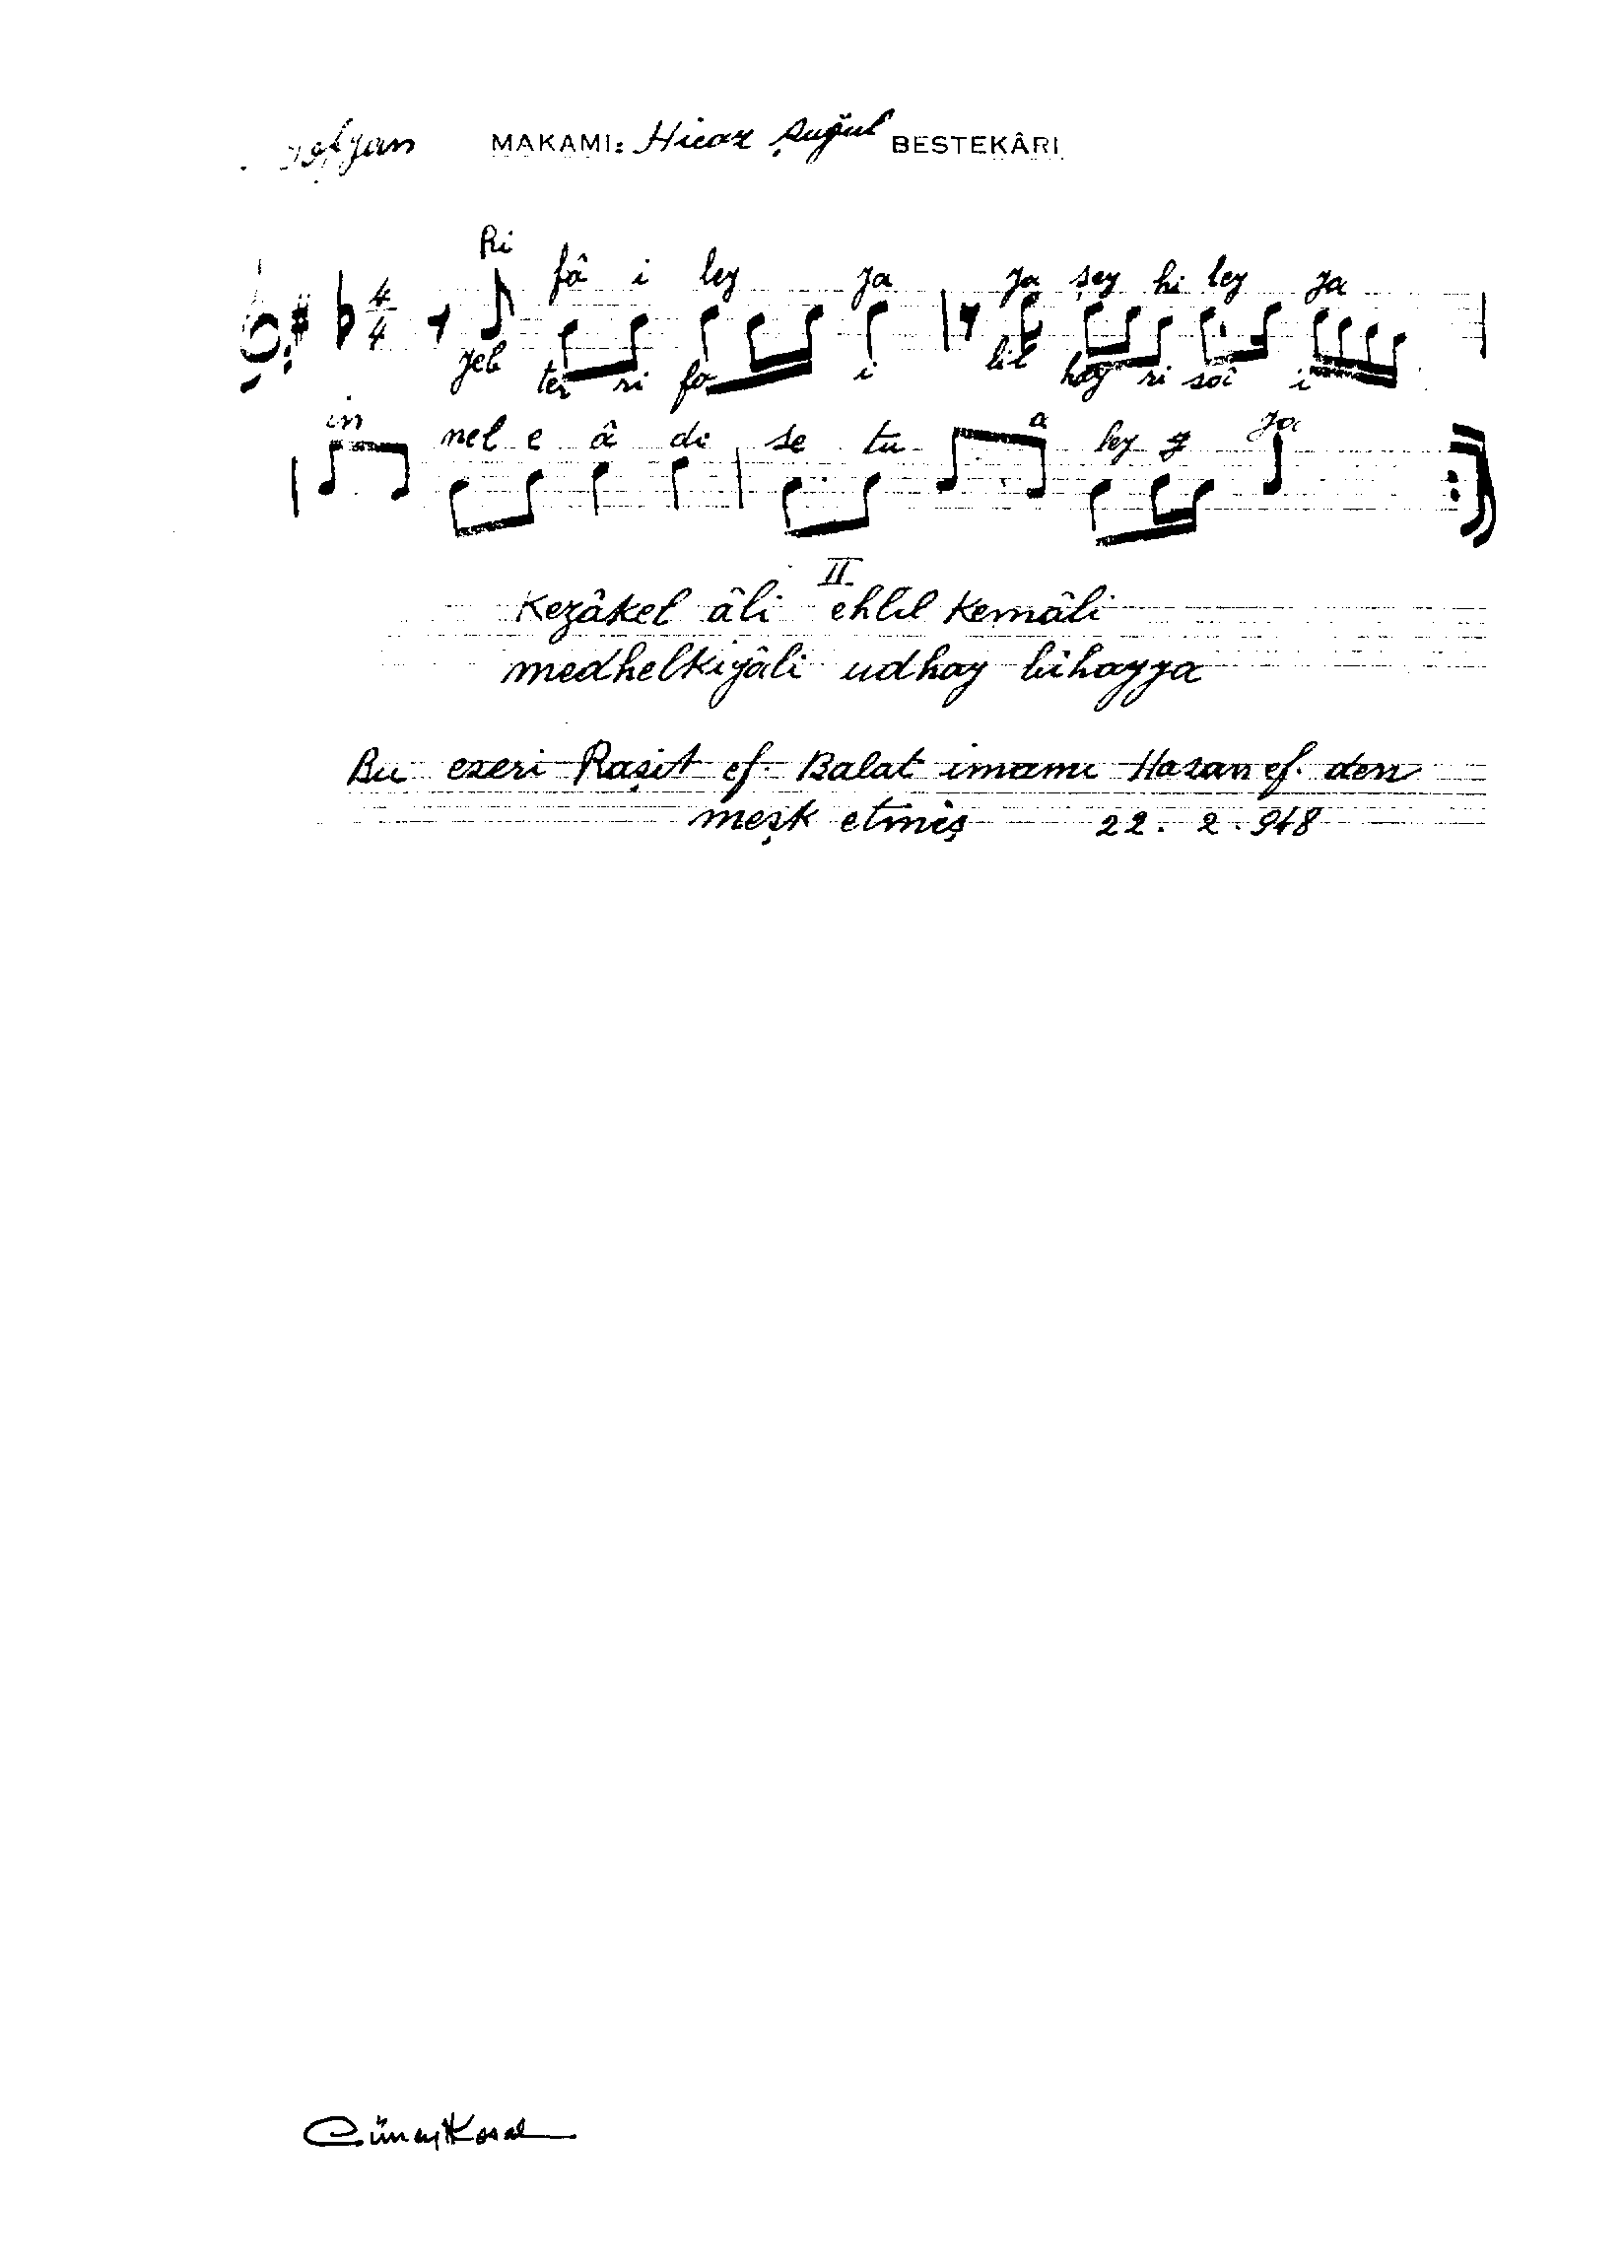 Sofyan MAKAMI: Hicaz Şuğul BESTEKÂRI
Ri fâ i ley ya ya şey hi ley ya
4/4
yeb ter ri fa i lil hay ri saî i
in nel e â di se tu a ley y ya
II
Kezâkel âli ehlil kemâli
medhelkiyâli udhay bihayya
Bu eseri Raşit ef. Balat imamı Hasan ef. den
meşk etmiş 22. 2. 948